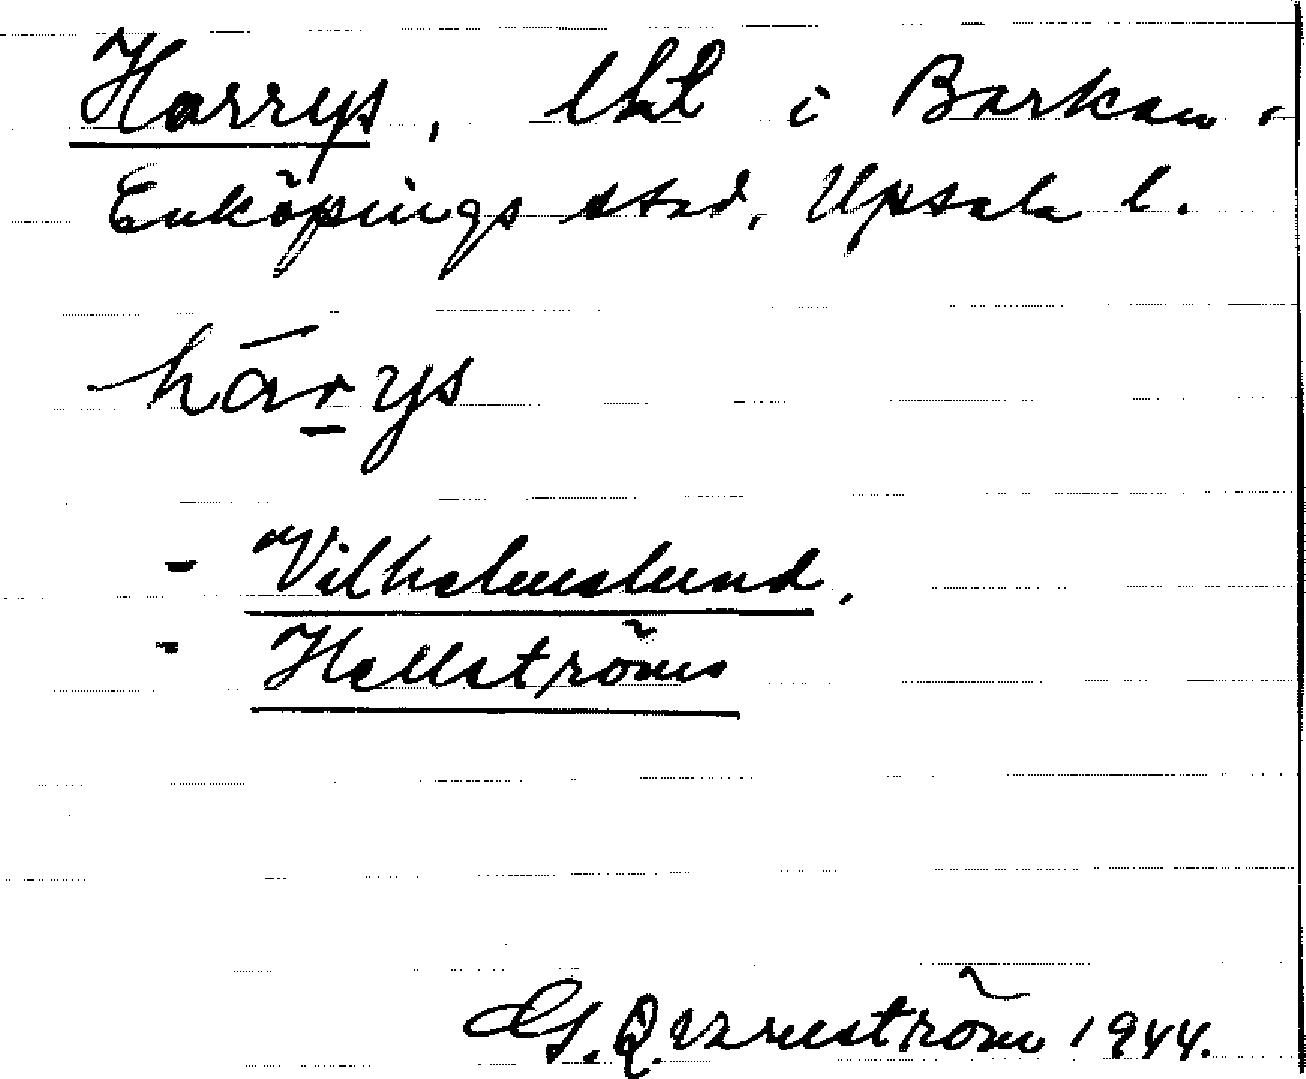 Harrys, lht i Barkan i
Enköpings stad, Upsala l.
hārys
- Vilhelmslund.
- Hellströms
G. Qvarnström 1944.